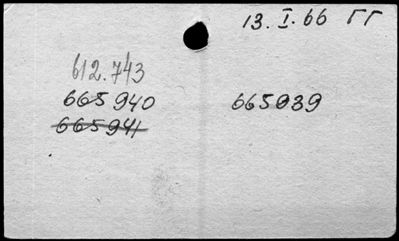 13. I. 66 ГГ
612.743
665940 665939
665941